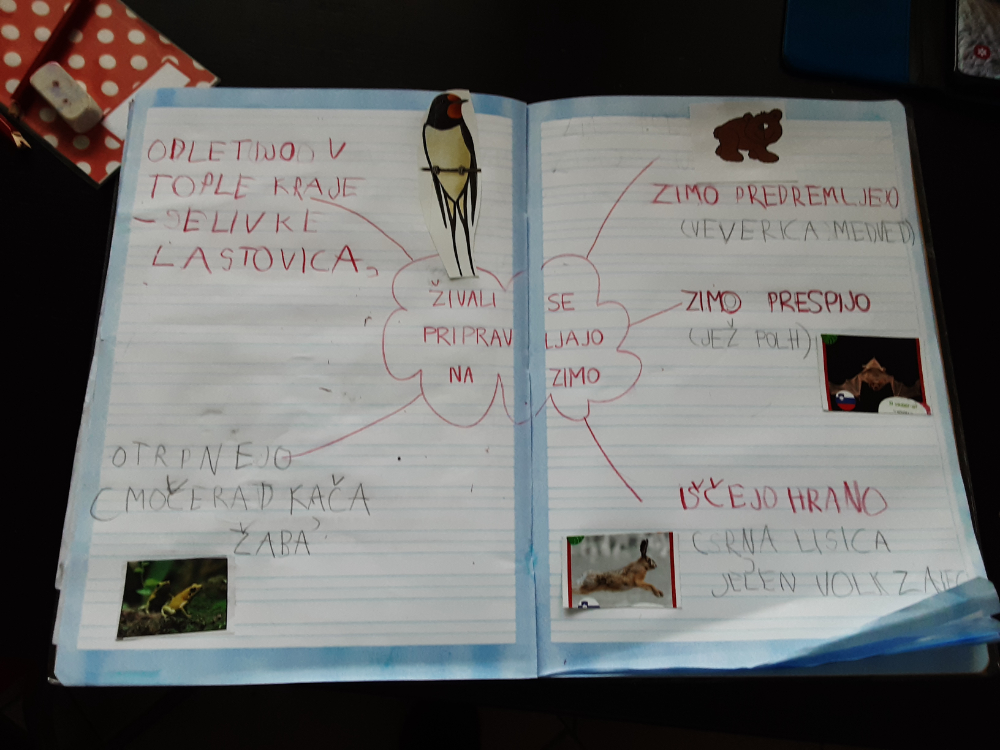 ODLETIJOO V
TOPLE KRAJE
- SELIVKE
LASTOVICA,
ŽIVALI SE
PRIPRAVLJAJO
NA ZIMO
OTRPNEJO
(MOČERAD KAČA,
ŽABA
ZIMO PREDREMLJEJO
(VEVERICA, MEDVED)
ZIMO PRESPIJO
(JEŽ POLH)
IŠČEJO HRANO
(SRNA LISICA
JELEN VOLK ZAJEC